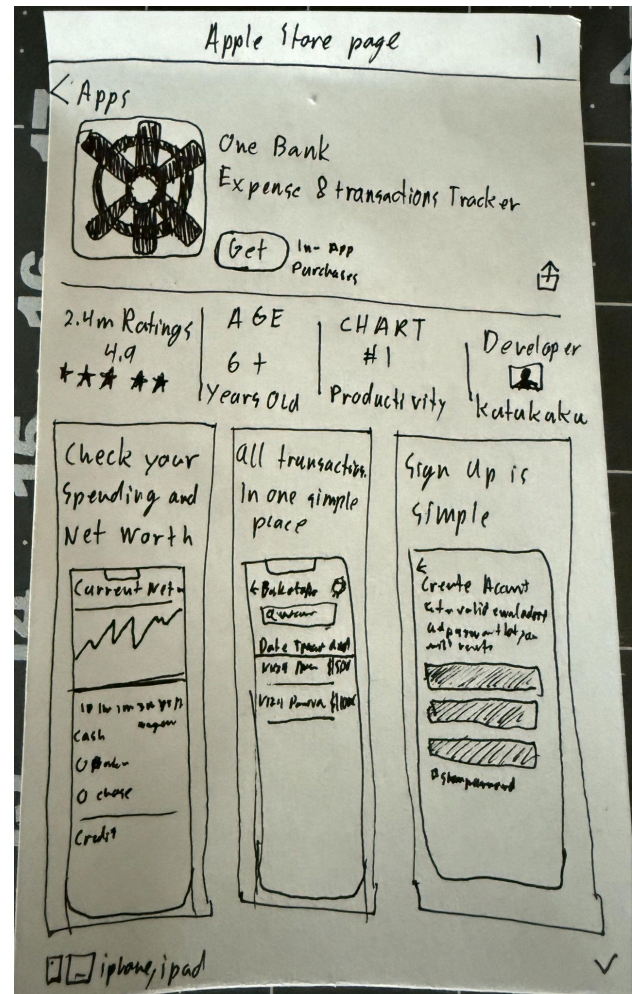 Apple Store page 1
< Apps
One Bank
Expense & transactions Tracker
Get
In-App
Purchases
2.4m Ratings
4.9
AGE
6+
Years Old
CHART
#1
Productivity
Developer
Katukaku
Check your
Spending and
Net Worth
Current Net
Cash
O chase
Credit
All transaction.
In one simple
place
Date
$1500
Sign Up is
Simple
Create Acount
iphone, ipad